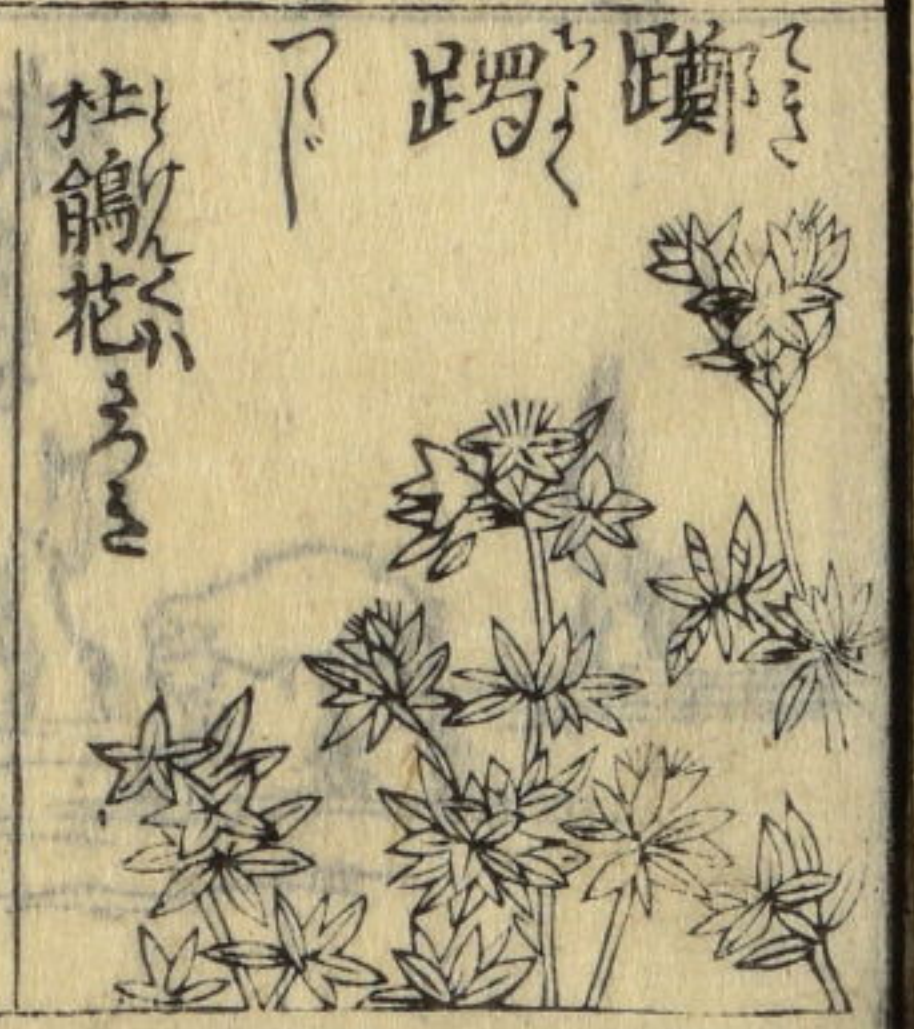 躑
てき
躅
ちよく
つゝじ
杜鵑花
とけんくハ
さつき